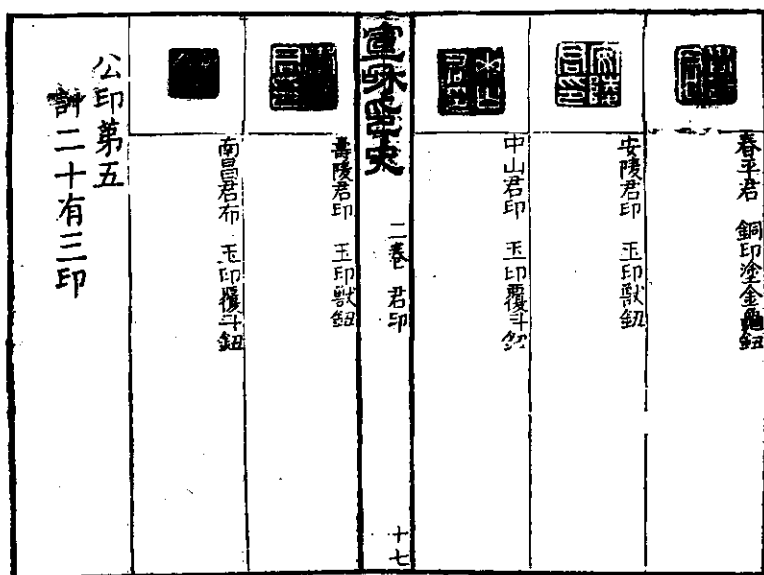 春平君 銅印塗金龜鈕
安陵君印 玉印獸鈕
中山君印 玉印覆斗鈕
宣和印史
二卷 君印
十七
壽陵君印 玉印獸鈕
南昌君布 玉印覆斗鈕
公印第五
計二十有三印